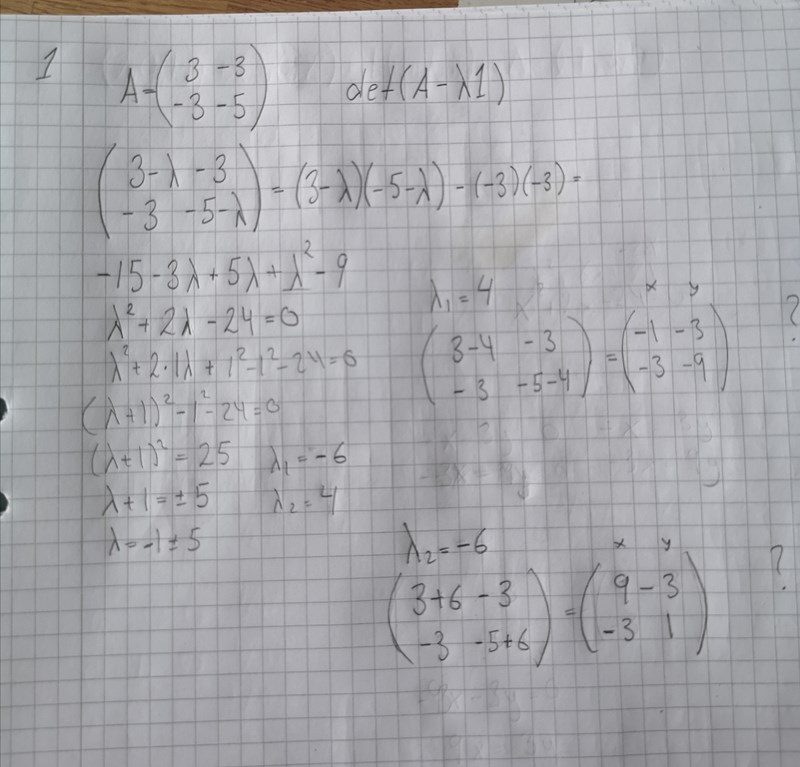 1
A=(3 -3
-3 -5) det(A-λ1)
(3-λ -3
-3 -5-λ) = (3-λ)(-5-λ) - (-3)(-3) =
-15-3λ+5λ+λ²-9
λ²+2λ-24=0
λ²+2·1λ+1²-1²-24=0
(λ+1)²-1²-24=0
(λ+1)²=25 λ₁=-6
λ+1=±5 λ₂=4
λ=-1±5
λ₁=4
x y
(3-4 -3
-3 -5-4) = (-1 -3
-3 -9) ?
λ₂=-6
x y
(3+6 -3
-3 -5+6) = (9 -3
-3 1) ?